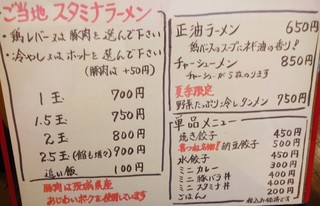 ご当地 スタミナラーメン
・鶏レバー又は豚肉を選んで下さい
・冷やし又はホットを選んで下さい
(豚肉は +50円)
1玉 700円
1.5玉 750円
2玉 800円
2.5玉 (餡も増々) 900円
追い飯 100円
豚肉は茨城県産
あじわいポークを使用しています
正油ラーメン 650円
チャーシューメン 850円
チャーシューが5枚のります
夏季限定
野菜たっぷり冷しタンメン 750円
単品メニュー
焼き餃子 450円
納豆餃子 500円
水餃子 450円
ミニカレー 300円
ミニ豚バラ丼 400円
ミニスタミナ丼 400円
ごはん 200円